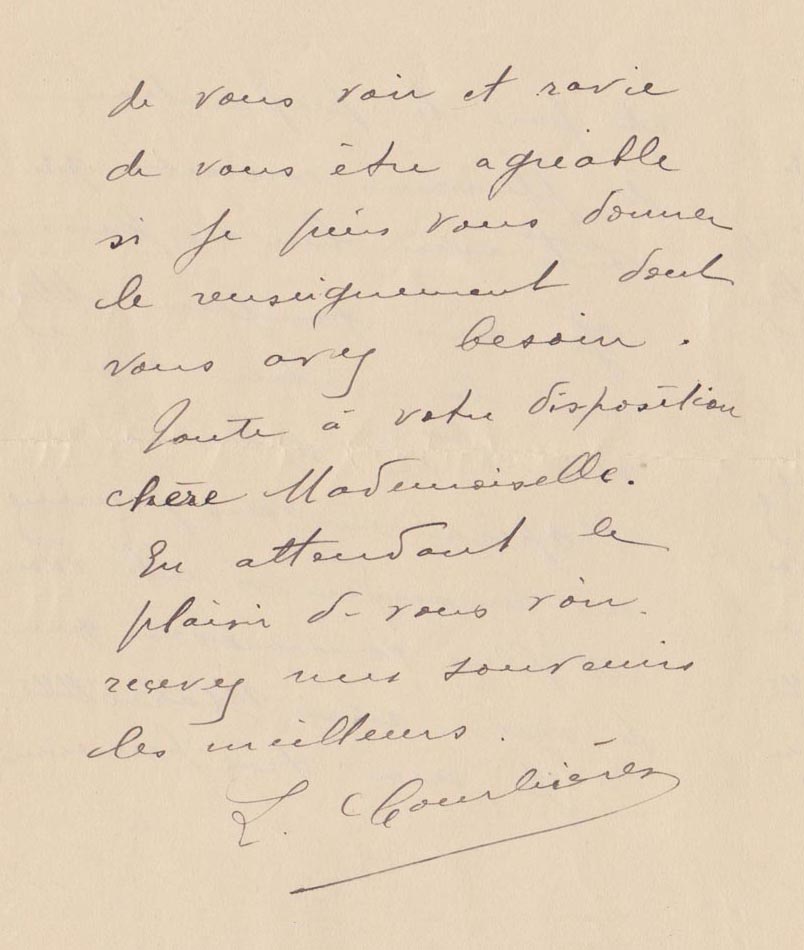 de vous voir et ravie
de vous être agréable
si je puis vous donner
le renseignement dont
vous avez besoin.
Toute à votre disposition
chère Mademoiselle.
En attendant le
plaisir de vous voir.
recevez mes souvenirs
les meilleurs.
L.